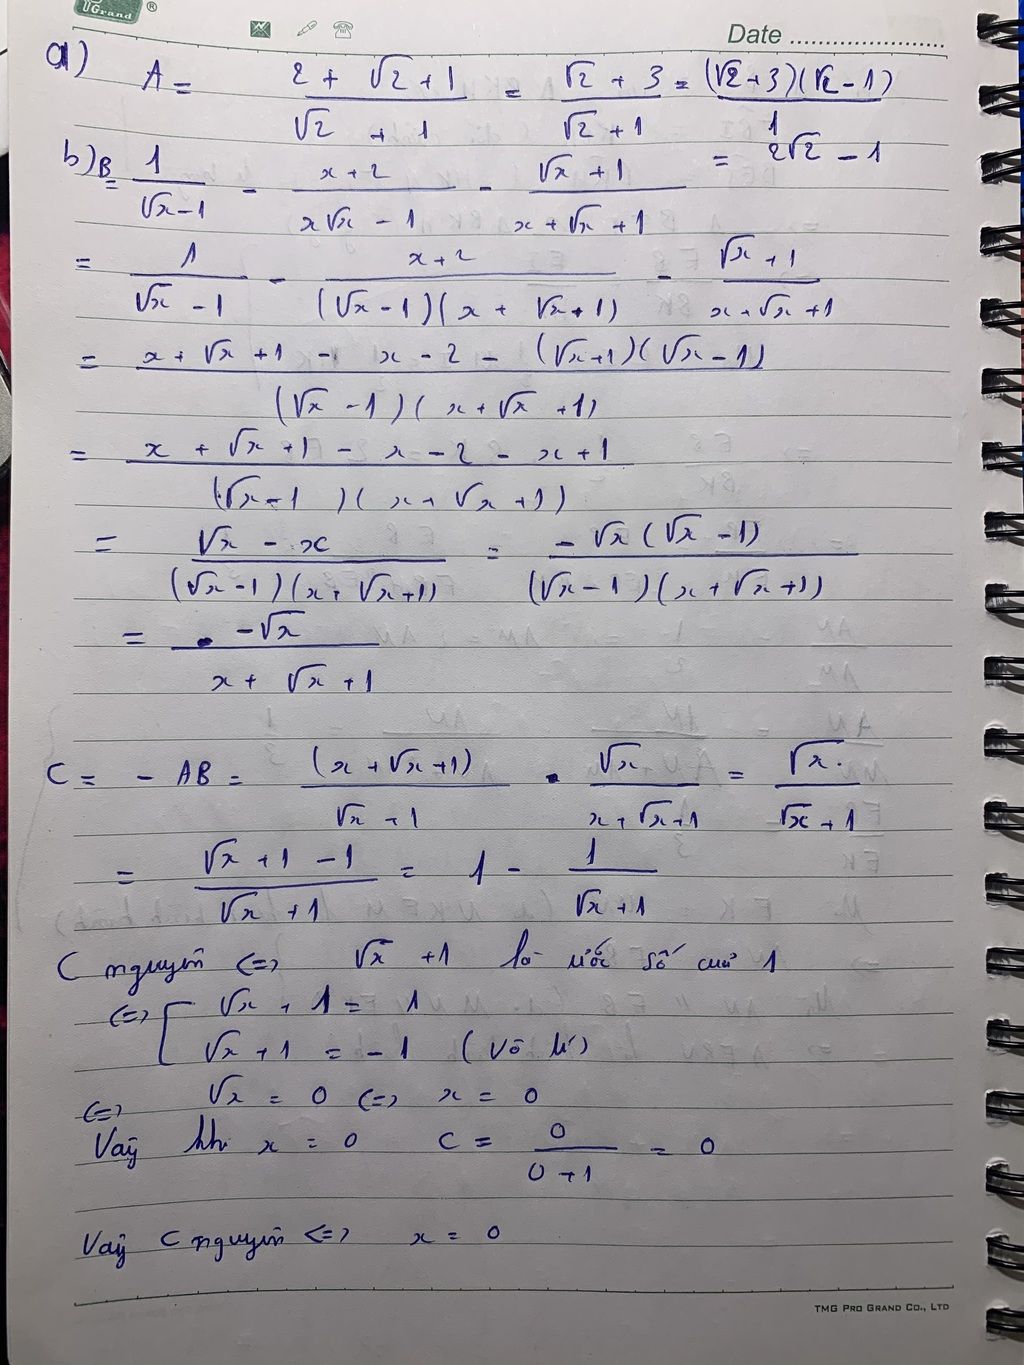 Grand ®
Date
a) A = (2 + √2 + 1)/(√2 + 1) = (√2 + 3)/(√2 + 1) = ((√2 + 3)(√2 - 1))/1
= 2√2 - 1
b) B = 1/(√x - 1) - (x + 2)/(x√x - 1) - (√x + 1)/(x + √x + 1)
= 1/(√x - 1) - (x + 2)/((√x - 1)(x + √x + 1)) - (√x + 1)/(x + √x + 1)
= (x + √x + 1 - x - 2 - (√x + 1)(√x - 1))/((√x - 1)(x + √x + 1))
= (x + √x + 1 - x - 2 - x + 1)/((√x - 1)(x + √x + 1))
= (√x - x)/((√x - 1)(x + √x + 1)) = (-√x(√x - 1))/((√x - 1)(x + √x + 1))
= (-√x)/(x + √x + 1)
C = - AB = (x + √x + 1)/(√x + 1) . √x/(x + √x + 1) = √x/(√x + 1)
= (√x + 1 - 1)/(√x + 1) = 1 - 1/(√x + 1)
C nguyên <=> √x + 1 là ước số của 1
<=> [ √x + 1 = 1
√x + 1 = -1 (vô lí)
<=> √x = 0 <=> x = 0
Vậy khi x = 0 C = 0/(0 + 1) = 0
Vậy C nguyên <=> x = 0
TMG PRO GRAND CO., LTD